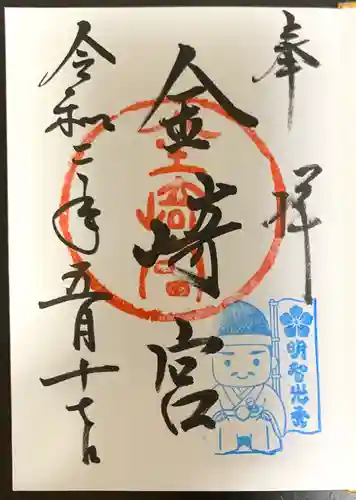 奉拝
金崎宮
金崎宮
令和二年五月十七日
明智光秀